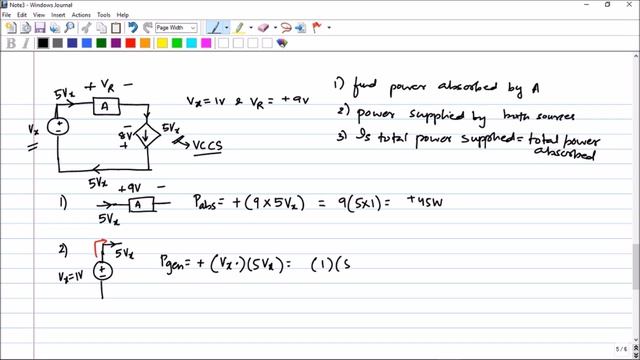 Note3 - Windows Journal
File Edit View Insert Actions Tools Help
Page Width
5Vx + VR −
A
Vx
+
−
−
8V
+
5Vx
VCCS
5Vx
Vx = 1V & VR = +9V
1) find power absorbed by A
2) power supplied by both sources
3) Is total power supplied = total power absorbed
1) + 9V −
A
5Vx
Pabs = + (9 × 5Vx) = 9(5×1) = +45W
2) 5Vx
Vx = 1V
+
−
Pgen = + (Vx·)(5Vx) = (1)(5
5 / 6